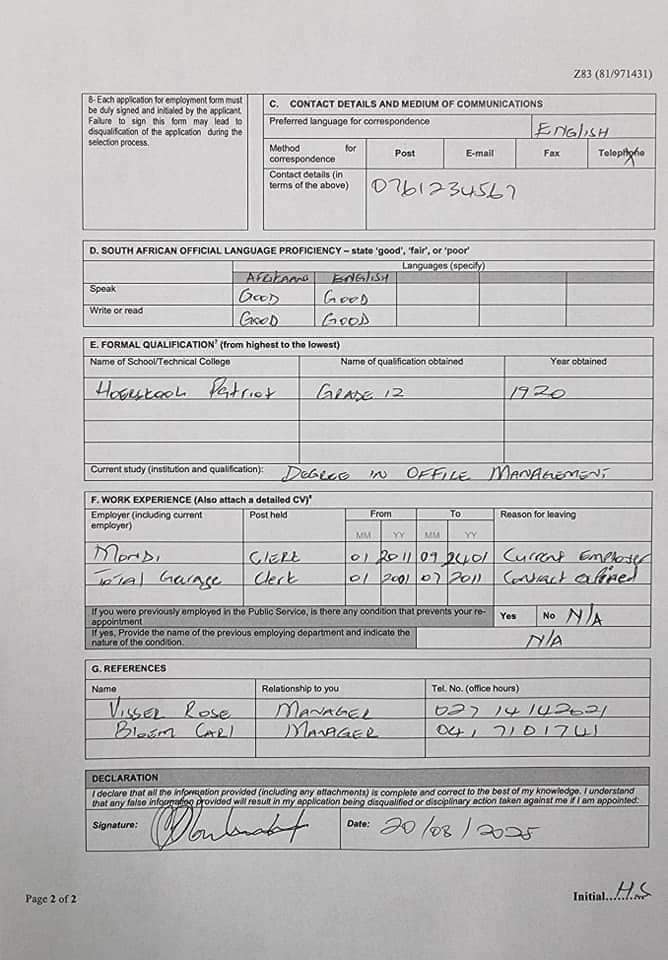 Z83 (81/971431)
8- Each application for employment form must
be duly signed and initialed by the applicant.
Failure to sign this form may lead to
disqualification of the application during the
selection process.
C. CONTACT DETAILS AND MEDIUM OF COMMUNICATIONS
Preferred language for correspondence
ENGLISH
Method for
correspondence
Post E-mail Fax Telephone
Contact details (in
terms of the above)
0761234567
D. SOUTH AFRICAN OFFICIAL LANGUAGE PROFICIENCY – state 'good', 'fair', or 'poor'
Languages (specify)
AFRIKAANS ENGLISH
Speak GOOD GOOD
Write or read GOOD GOOD
E. FORMAL QUALIFICATION⁷ (from highest to the lowest)
Name of School/Technical College Name of qualification obtained Year obtained
HOERSKOOL Patriot GRADE 12 1920
Current study (institution and qualification): DEGREE IN OFFICE MANAGEMENT
F. WORK EXPERIENCE (Also attach a detailed CV)⁸
Employer (including current
employer)
Post held From To Reason for leaving
MM YY MM YY
MONDI CLERK 01 2011 09 2401 Current Employer
Total Garage Clerk 01 2001 07 2011 Contract expired
If you were previously employed in the Public Service, is there any condition that prevents your re-
appointment
Yes No N/A
If yes, Provide the name of the previous employing department and indicate the
nature of the condition.
N/A
G. REFERENCES
Name Relationship to you Tel. No. (office hours)
VISSER ROSE MANAGER 027 14142621
BLOEM CARL MANAGER 041 7101741
DECLARATION
I declare that all the information provided (including any attachments) is complete and correct to the best of my knowledge. I understand
that any false information provided will result in my application being disqualified or disciplinary action taken against me if I am appointed:
Signature: Date: 20/08/2025
Page 2 of 2
Initial H.S